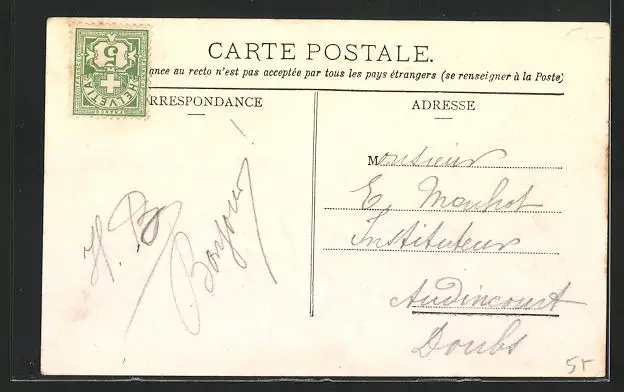 5
HELVETIA
FRANCO
CARTE POSTALE.
ance au recto n'est pas acceptée par tous les pays étrangers (se renseigner à la Poste)
RRESPONDANCE
ADRESSE
Monsieur
E.
Instituteur
Audincourt
Doubs
H. B
Bonjour!
5r